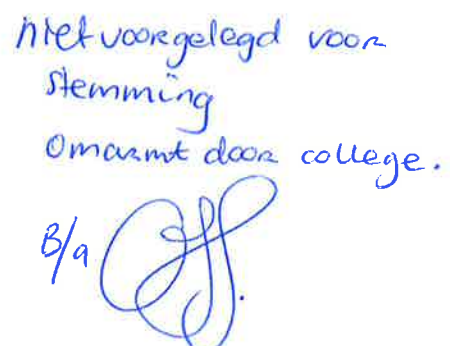 niet voorgelegd voor
stemming
Omarmt door college.
B/a